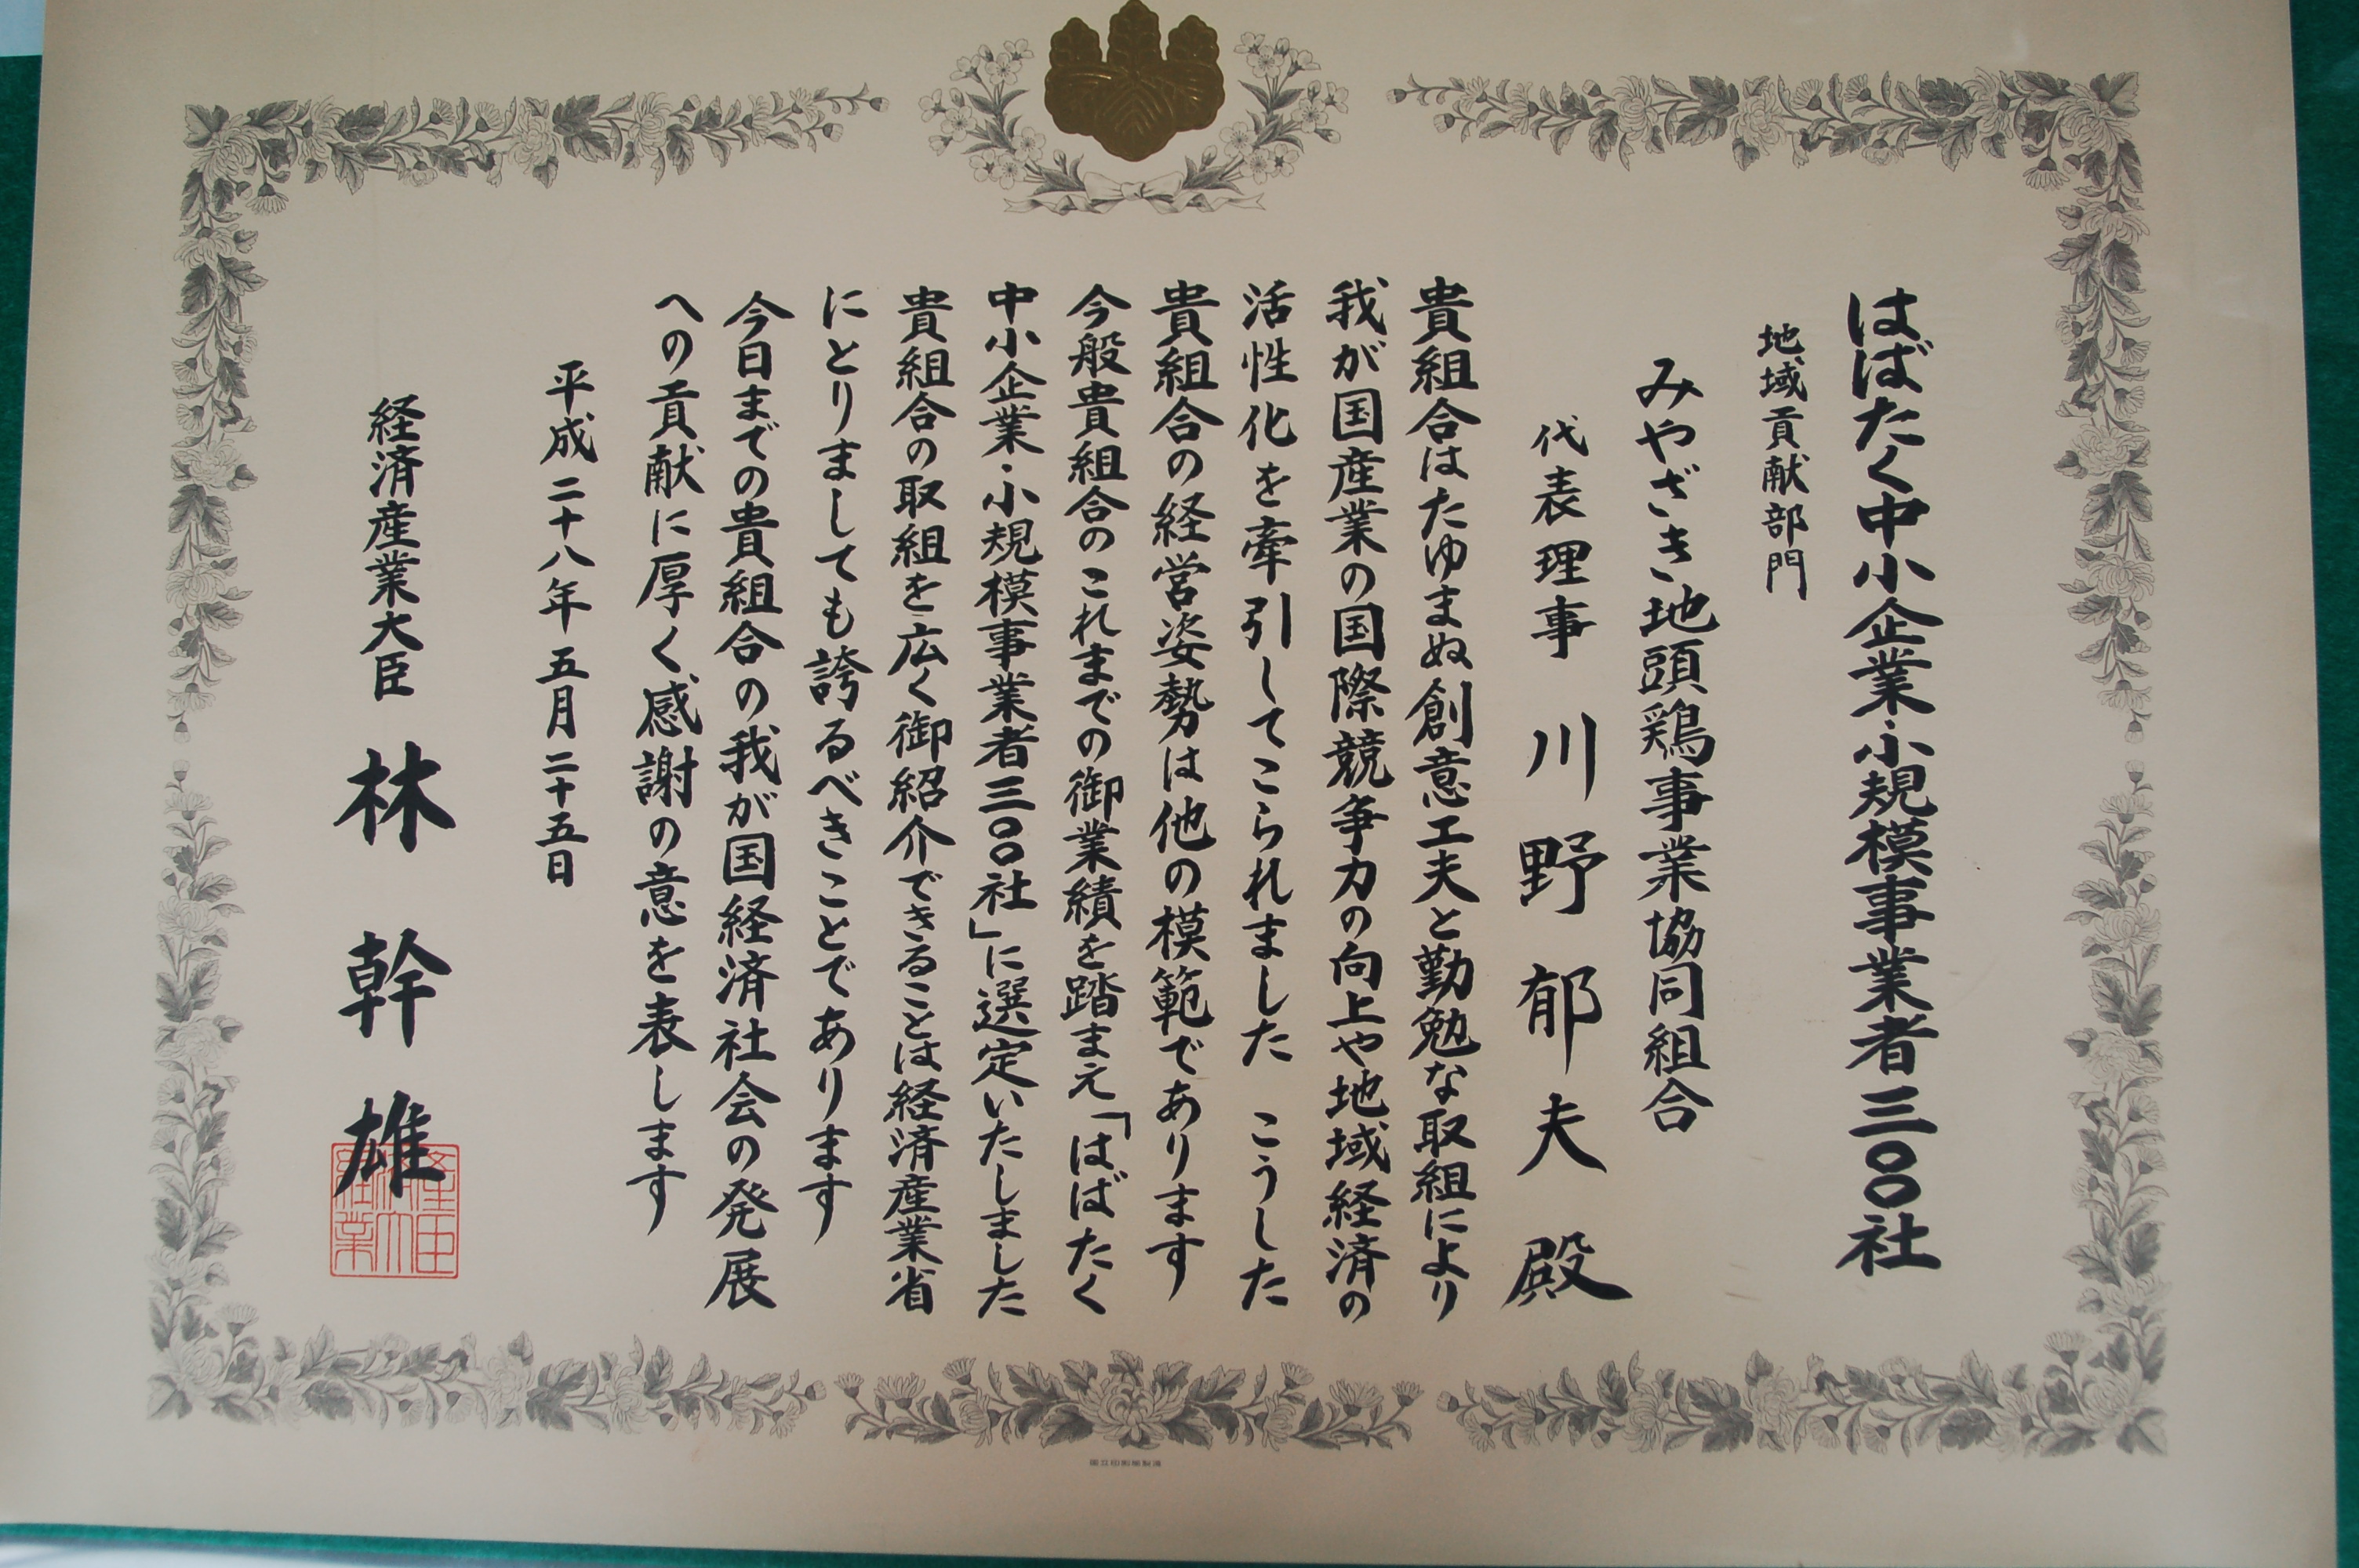 はばたく中小企業・小規模事業者三〇〇社
地域貢献部門
みやざき地頭鶏事業協同組合
代表理事 川野郁夫 殿
貴組合はたゆまぬ創意工夫と勤勉な取組により
我が国産業の国際競争力の向上や地域経済の
活性化を牽引してこられました こうした
貴組合の経営姿勢は他の模範であります
今般貴組合のこれまでの御業績を踏まえ「はばたく
中小企業・小規模事業者三〇〇社」に選定いたしました
貴組合の取組を広く御紹介できることは経済産業省
にとりましても誇るべきことであります
今日までの貴組合の我が国経済社会の発展
への貢献に厚く感謝の意を表します
平成二十八年五月二十五日
経済産業大臣 林幹雄